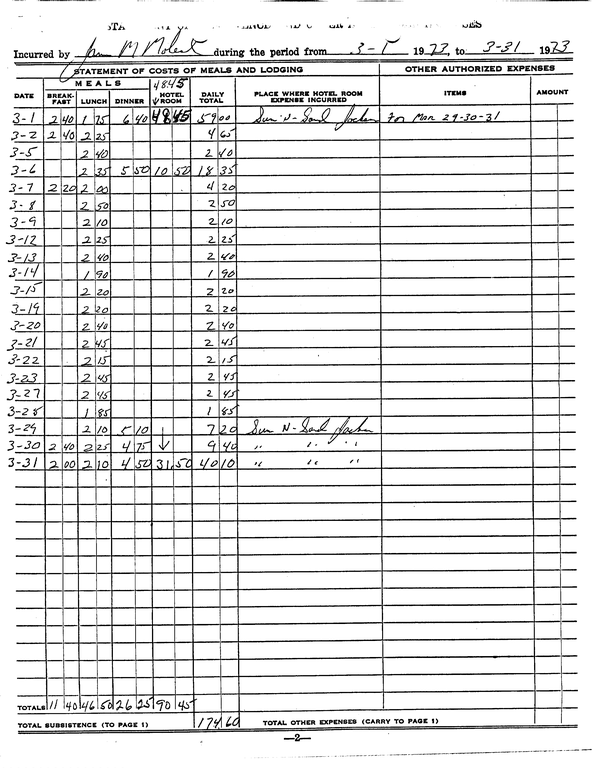 Incurred by during the period from 3-1 1973, to 3-31 1973
STATEMENT OF COSTS OF MEALS AND LODGING OTHER AUTHORIZED EXPENSES
MEALS 4845
DATE BREAK-FAST LUNCH DINNER HOTEL ROOM DAILY TOTAL PLACE WHERE HOTEL ROOM EXPENSE INCURRED ITEMS AMOUNT
3-1 2 40 1 75 6 40 48 45 59 00 Sun-N-Sand For Mar 29-30-31
3-2 2 40 2 25 4 65
3-5 2 40 2 40
3-6 2 35 5 50 10 50 18 35
3-7 2 20 2 00 4 20
3-8 2 50 2 50
3-9 2 10 2 10
3-12 2 25 2 25
3-13 2 40 2 40
3-14 1 90 1 90
3-15 2 20 2 20
3-19 2 20 2 20
3-20 2 40 2 40
3-21 2 45 2 45
3-22 2 15 2 15
3-23 2 45 2 45
3-27 2 45 2 45
3-28 1 85 1 85
3-29 2 10 5 10 7 20 Sun N-Sand
3-30 2 40 2 25 4 75 9 40 " " "
3-31 2 00 2 10 4 50 31.50 40 10 " " "
TOTALS 11 40 46 50 26 25 90 45
TOTAL SUBSISTENCE (TO PAGE 1) 174 60 TOTAL OTHER EXPENSES (CARRY TO PAGE 1)
—2—